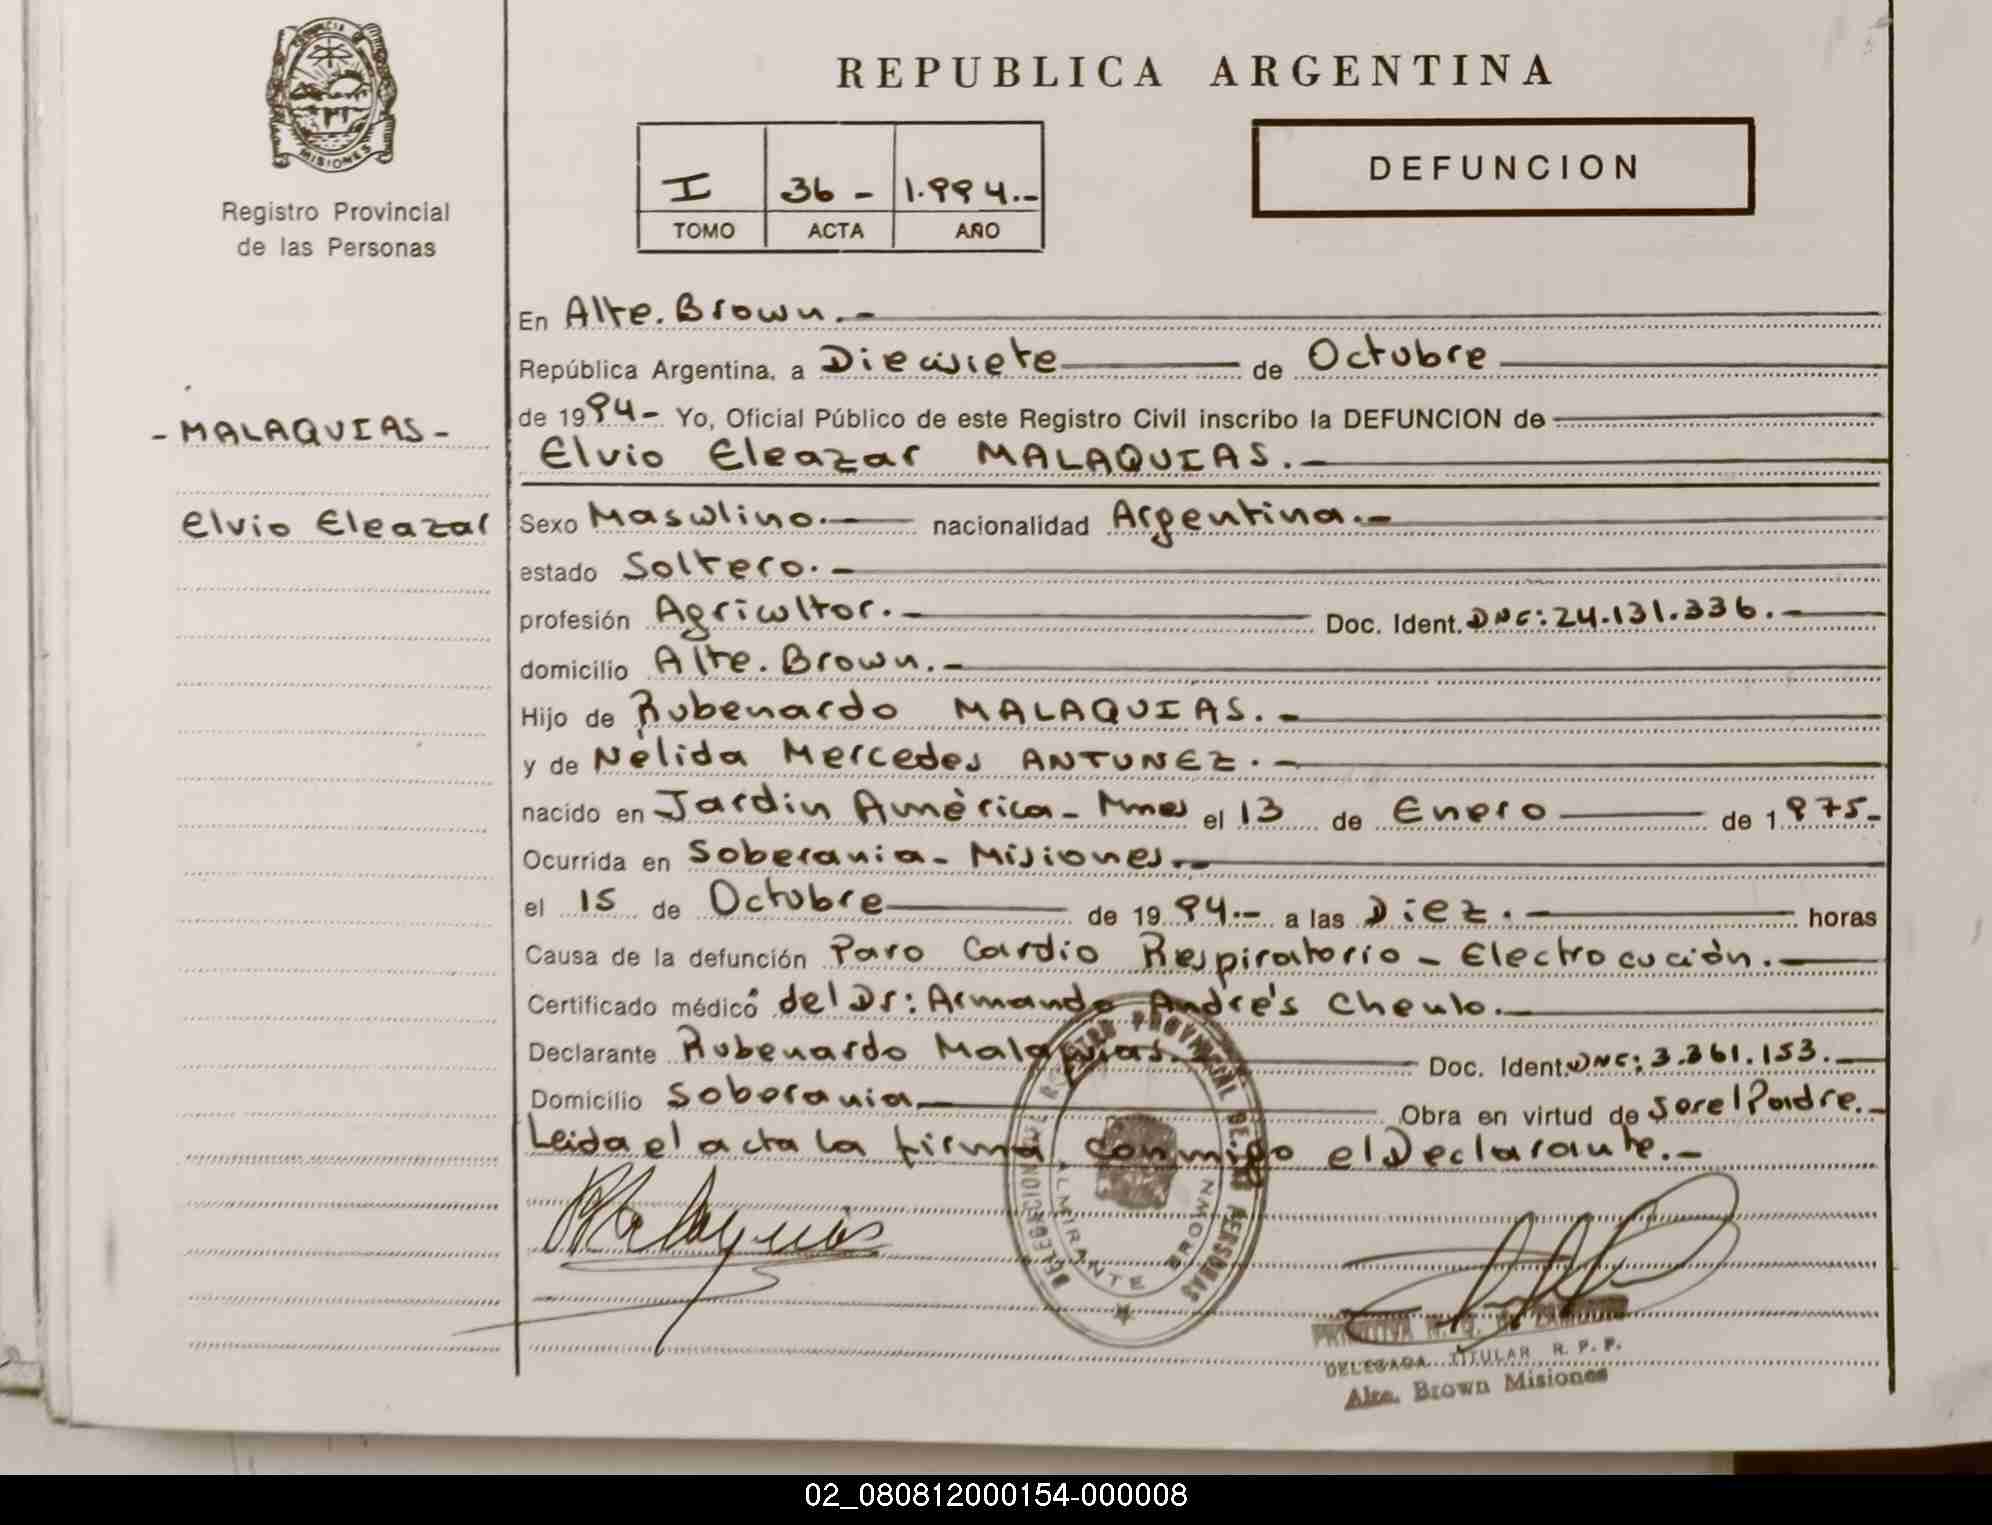 PROVINCIA DE
MISIONES
Registro Provincial
de las Personas
REPUBLICA ARGENTINA
I 36 - 1.994.-
TOMO ACTA AÑO
DEFUNCION
- MALAQUIAS -
Elvio Eleazar
En Alte. Brown.-
República Argentina, a Diecisiete de Octubre
de 1994- Yo, Oficial Público de este Registro Civil inscribo la DEFUNCION de
Elvio Eleazar MALAQUIAS.-
Sexo Masculino.- nacionalidad Argentina.-
estado Soltero.-
profesión Agricultor.- Doc. Ident. DNI: 24.131.336.-
domicilio Alte. Brown.-
Hijo de Rubenardo MALAQUIAS.-
y de Nélida Mercedes ANTUNEZ.-
nacido en Jardín América - Mnes el 13 de Enero de 1975-
Ocurrida en Soberania - Misiones.-
el 15 de Octubre de 1994.- a las Diez.- horas
Causa de la defunción Paro Cardio Respiratorio - Electrocución.-
Certificado médico del Dr: Armando Andrés Cheulo.-
Declarante Rubenardo Malaquias.- Doc. Ident. DNI: 3.361.153.-
Domicilio Soberania Obra en virtud de Ser el Padre.-
Leida el acta la firma conmigo el Declarante.-
RMalaquias
DELEGACION DE REGISTRO PROVINCIAL DE LAS PERSONAS
ALMIRANTE BROWN
DELEGADA TITULAR R. P. P.
Alte. Brown Misiones
02_080812000154-000008